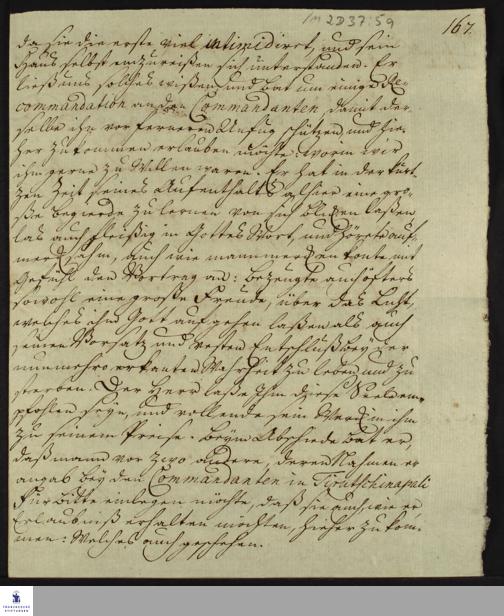 /M 2D37:59
167.
da sie die erste viel intimidiret, und sein
Haus selbst einzureißen sich unterstanden. Er
ließ uns solches wißen und bat um einige Re-
commandation an den Commandanten, damit der-
selbe ihn vor fernerem Unfug schützen, und hie-
her zu kommen erlauben möchte: worin wir
ihm gerne zu Willen waren. Er hat in der kur-
zen Zeit seines Aufenthalts alhier eine gro-
ße Begierde zu lernen von sich blicken laßen
las auch fleißig in Gottes Wort, und hörete auf-
mercksahm, auch wie man mercken konte, mit
Gefühl den Vortrag an: bezeugte auch öfters
sowohl eine große Freude, über das Licht,
welches ihm Gott aufgehen laßen als auch
seinen Vorsatz und vesten Entschluß bey der
nunmehro erkanten Wahrheit zu leben und zu
sterben. Der Herr laße Ihm diese Seele em-
pfohlen seyn, und vollende sein Werck in ihm
zu seinem Preise. Beym Abschiede bat er,
daß man vor zwo andere, deren Nahmen er
angab bey den Commandanten in Tirutschinapali
Fürbitte einlegen möchte, daß sie auch wie er
Erlaubniß erhalten mochten, hieher zu kom-
men: Welches auch geschehen.
FRANCKESCHE STIFTUNGEN